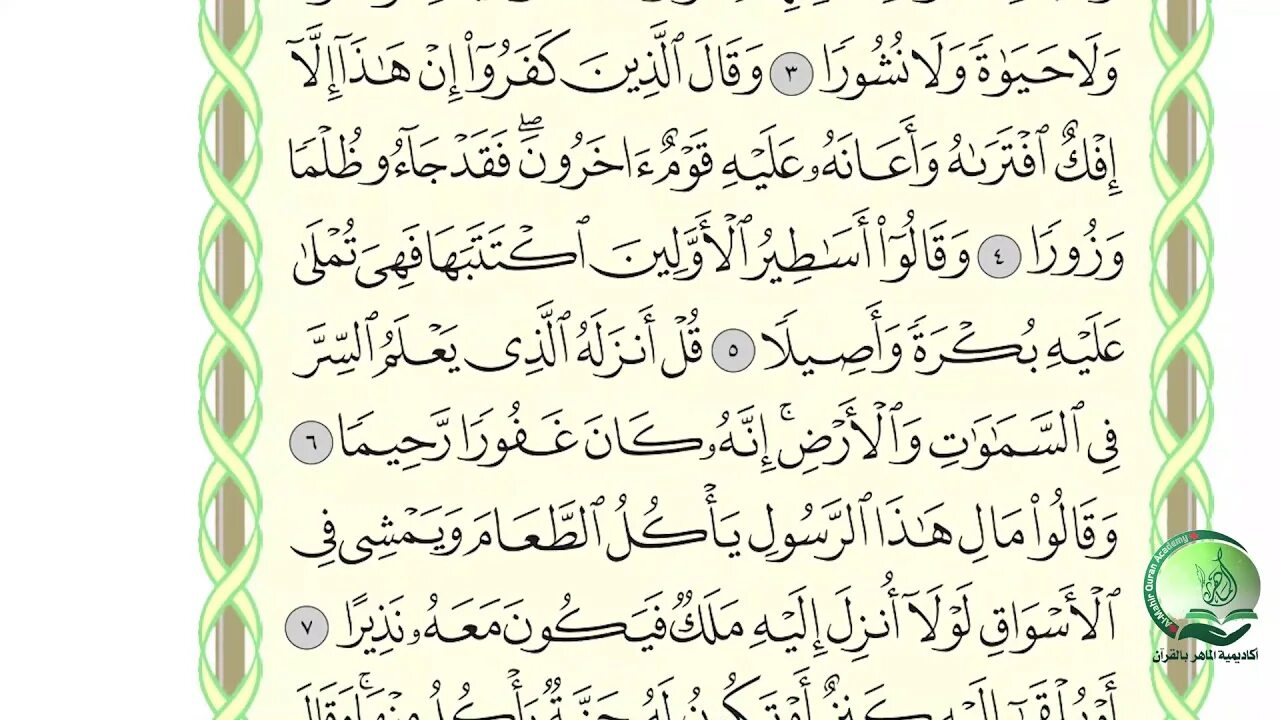 وَلَا حَيَوٰةً وَلَا نُشُورًا ٣ وَقَالَ ٱلَّذِينَ كَفَرُوٓا۟ إِنْ هَـٰذَآ إِلَّآ
إِفْكٌ ٱفْتَرَىٰهُ وَأَعَانَهُۥ عَلَيْهِ قَوْمٌ ءَاخَرُونَ ۖ فَقَدْ جَآءُو ظُلْمًا
وَزُورًا ٤ وَقَالُوٓا۟ أَسَـٰطِيرُ ٱلْأَوَّلِينَ ٱكْتَتَبَهَا فَهِىَ تُمْلَىٰ
عَلَيْهِ بُكْرَةً وَأَصِيلًا ٥ قُلْ أَنزَلَهُ ٱلَّذِى يَعْلَمُ ٱلسِّرَّ
فِى ٱلسَّمَـٰوَٰتِ وَٱلْأَرْضِ ۚ إِنَّهُۥ كَانَ غَفُورًا رَّحِيمًا ٦
وَقَالُوا۟ مَالِ هَـٰذَا ٱلرَّسُولِ يَأْكُلُ ٱلطَّعَامَ وَيَمْشِى فِى
ٱلْأَسْوَاقِ ۙ لَوْلَآ أُنزِلَ إِلَيْهِ مَلَكٌ فَيَكُونَ مَعَهُۥ نَذِيرًا ٧
أَوْ يُلْقَىٰٓ إِلَيْهِ كَنزٌ أَوْ تَكُونُ لَهُۥ جَنَّةٌ يَأْكُلُ مِنْهَا ۚ وَقَالَ
Al-Mahir Quran Academy
الماهر
أكاديمية الماهر بالقرآن